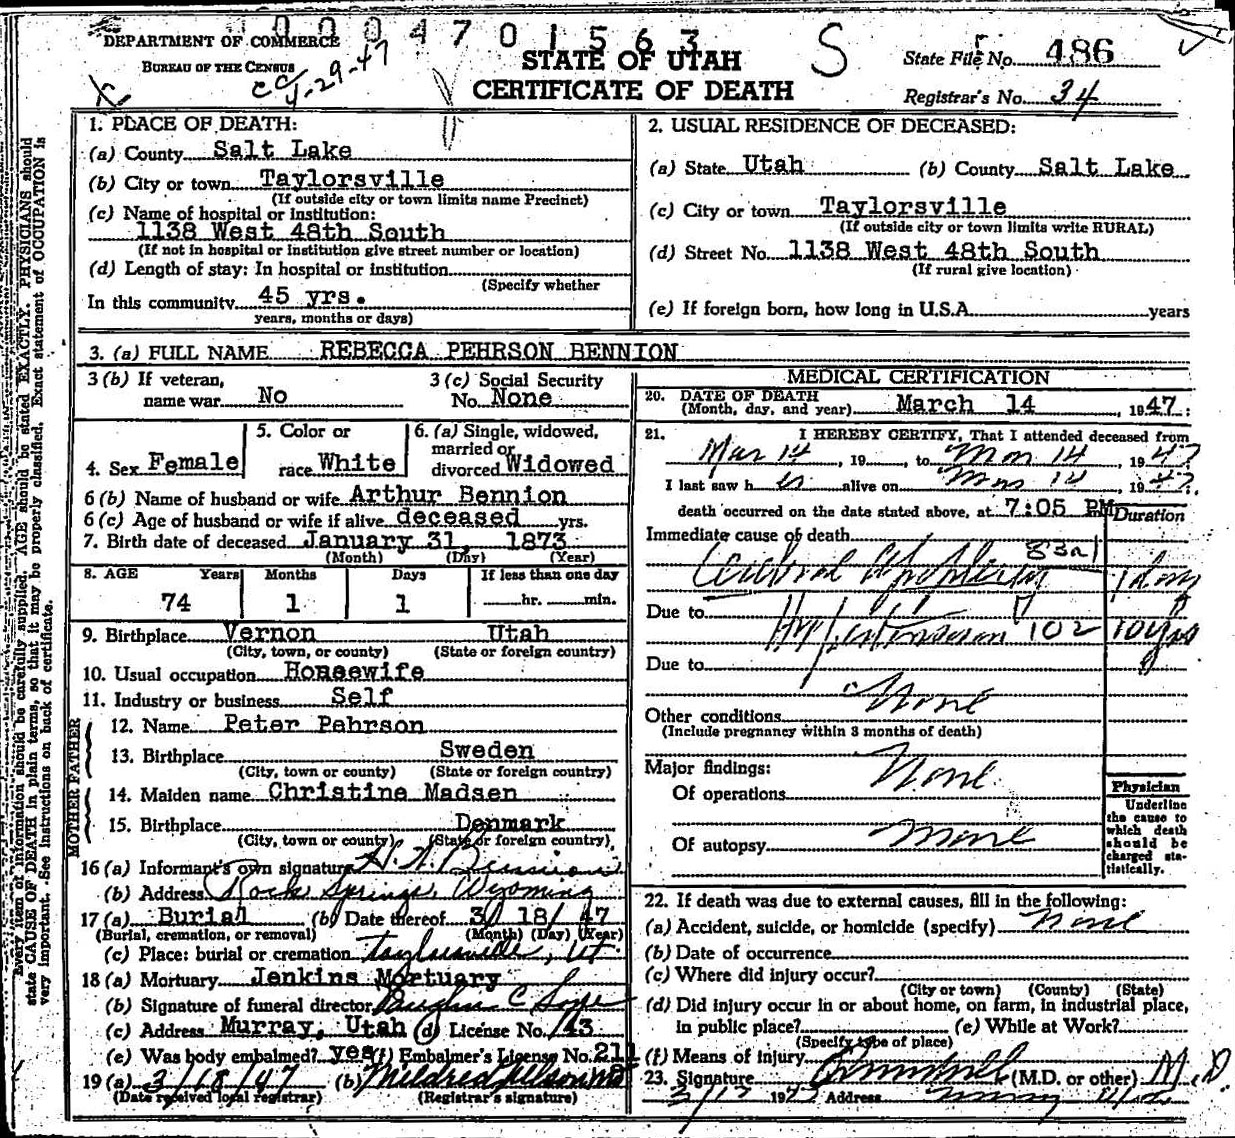 000 4 7 0 1 5 6 3
DEPARTMENT OF COMMERCE
BUREAU OF THE CENSUS
4-29-47
STATE OF UTAH
CERTIFICATE OF DEATH
S
State File No. 486
Registrar's No. 34
1. PLACE OF DEATH:
(a) County Salt Lake
(b) City or town Taylorsville
(If outside city or town limits name Precinct)
(c) Name of hospital or institution:
1138 West 48th South
(If not in hospital or institution give street number or location)
(d) Length of stay: In hospital or institution
(Specify whether
In this community 45 yrs.
years, months or days)
2. USUAL RESIDENCE OF DECEASED:
(a) State Utah (b) County Salt Lake
(c) City or town Taylorsville
(If outside city or town limits write RURAL)
(d) Street No. 1138 West 48th South
(If rural give location)
(e) If foreign born, how long in U.S.A. years
3. (a) FULL NAME REBECCA PEHRSON BENNION
3 (b) If veteran,
name war No
3 (c) Social Security
No. None
4. Sex Female
5. Color or
race White
6. (a) Single, widowed,
married or
divorced Widowed
6 (b) Name of husband or wife Arthur Bennion
6 (c) Age of husband or wife if alive deceased yrs.
7. Birth date of deceased January 31, 1873
(Month) (Day) (Year)
8. AGE Years Months Days If less than one day
74 1 1 hr. min.
9. Birthplace Vernon Utah
(City, town, or county) (State or foreign country)
10. Usual occupation Housewife
11. Industry or business Self
FATHER
12. Name Peter Pehrson
13. Birthplace Sweden
(City, town or county) (State or foreign country)
MOTHER
14. Maiden name Christine Madsen
15. Birthplace Denmark
(City, town or county) (State or foreign country)
16 (a) Informant's own signature Bennion
(b) Address Rock Springs, Wyoming
17 (a) Burial (b) Date thereof 3/ 18/ 47
(Burial, cremation, or removal) (Month) (Day) (Year)
(c) Place: burial or cremation Taylorsville, Ut.
18 (a) Mortuary Jenkins Mortuary
(b) Signature of funeral director
(c) Address Murray, Utah (d) License No. 143
(e) Was body embalmed? yes (f) Embalmer's License No. 211
19 (a) 3/18/47 (b) Mildred Nelson
(Date received local registrar) (Registrar's signature)
MEDICAL CERTIFICATION
20. DATE OF DEATH
(Month, day, and year) March 14, 1947
21. I HEREBY CERTIFY, That I attended deceased from
Mar 14, 19 , to Mar 14, 1947
I last saw h er alive on Mar 14, 1947
death occurred on the date stated above, at 7:05 PM
Duration
Immediate cause of death 83a
Cerebral Apoplexy 1 day
Due to Hypertension 102 10 yrs
Due to
None
Other conditions
(Include pregnancy within 3 months of death)
Major findings:
Of operations None
Of autopsy None
Physician
Underline
the cause to
which death
should be
charged sta-
tistically.
22. If death was due to external causes, fill in the following:
(a) Accident, suicide, or homicide (specify) None
(b) Date of occurrence
(c) Where did injury occur?
(City or town) (County) (State)
(d) Did injury occur in or about home, on farm, in industrial place,
in public place? (e) While at Work?
(Specify type of place)
(f) Means of injury
23. Signature (M.D. or other) M.D.
3/17 1947 Address Murray Utah
Every item of information should be carefully supplied. AGE should be stated EXACTLY. PHYSICIANS should
state CAUSE OF DEATH in plain terms, so that it may be properly classified. Exact statement of OCCUPATION is
very important. See instructions on back of certificate.